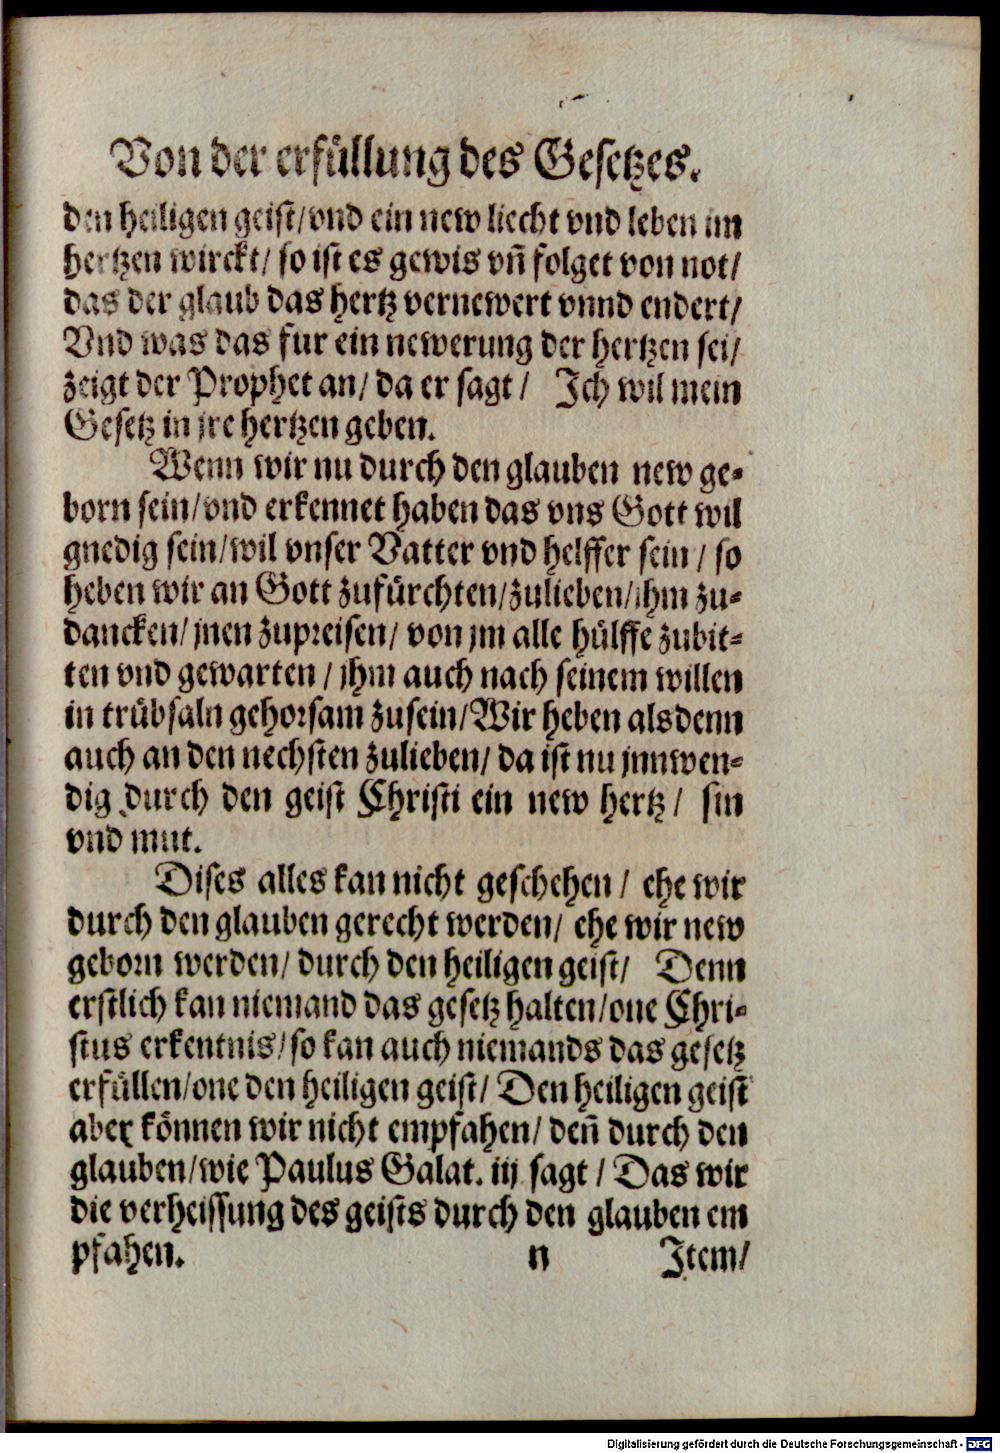 Von der erfüllung des Gesetzes.
den heiligen geist/vnd ein new liecht vnd leben im
hertzen wirckt/ so ist es gewis vñ folget von not/
das der glaub das hertz vernewert vnnd endert/
Vnd was das fur ein newerung der hertzen sei/
zeigt der Prophet an/ da er sagt/ Ich wil mein
Gesetz in jre hertzen geben.
Wenn wir nu durch den glauben new ge-
born sein/vnd erkennet haben das vns Gott wil
gnedig sein/wil vnser Vatter vnd helffer sein/ so
heben wir an Gott zufürchten/zulieben/ihm zu-
dancken/ jnen zupreisen/ von jm alle hülffe zubit-
ten vnd gewarten/ jhm auch nach seinem willen
in trübsaln gehorsam zusein/Wir heben alsdenn
auch an den nechsten zulieben/ da ist nu jnnwen-
dig durch den geist Christi ein new hertz/ sin
vnd mut.
Dises alles kan nicht geschehen/ ehe wir
durch den glauben gerecht werden/ ehe wir new
geborn werden/ durch den heiligen geist/ Denn
erstlich kan niemand das gesetz halten/one Chri-
stus erkentnis/so kan auch niemands das gesetz
erfüllen/one den heiligen geist/ Den heiligen geist
aber können wir nicht empfahen/ deñ durch den
glauben/wie Paulus Galat. iij sagt/ Das wir
die verheissung des geists durch den glauben em
pfahen.
n Item/
Digitalisierung gefördert durch die Deutsche Forschungsgemeinschaft - DFG